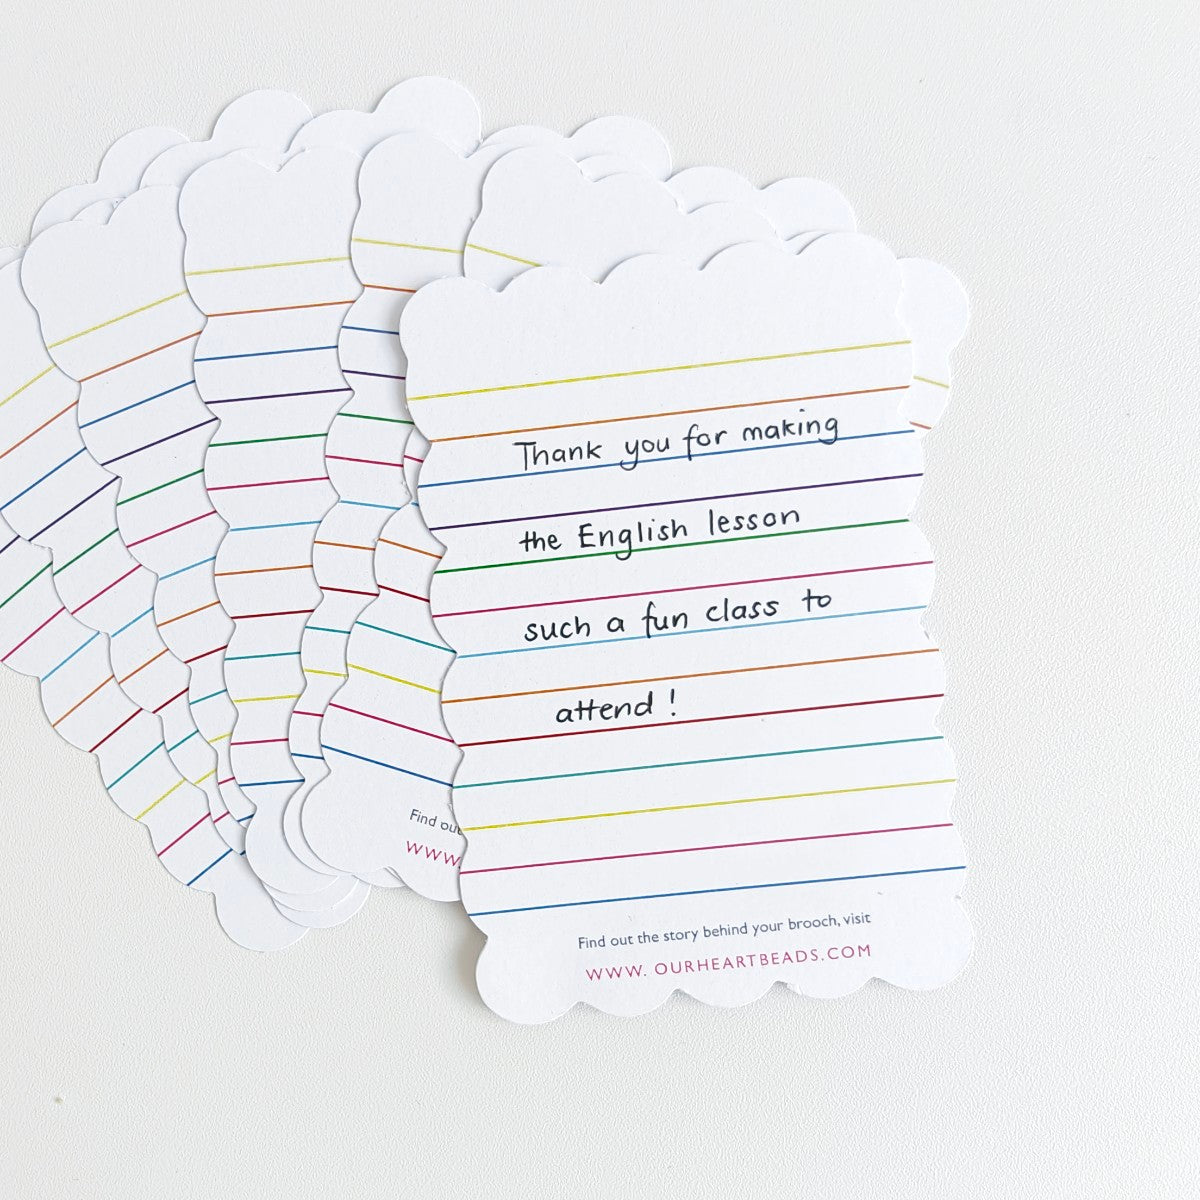 Thank you for making
the English lesson
such a fun class to
attend !
Find out the story behind your brooch, visit
WWW. OURHEARTBEADS.COM
Find out
WWW.